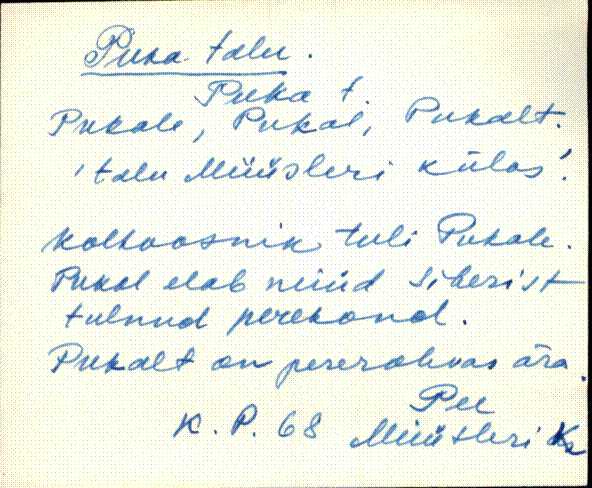 Puka talu.
Puka t.
Pukale, Pukal, Pukalt.
'talu Müüsleri külas'.
Kolhoosnik tuli Pukale.
Pukal elab nüüd Siberist
tulnud perekond.
Pukalt on pererahvas ära.
Pee
K. P. 68 Müüsleri k